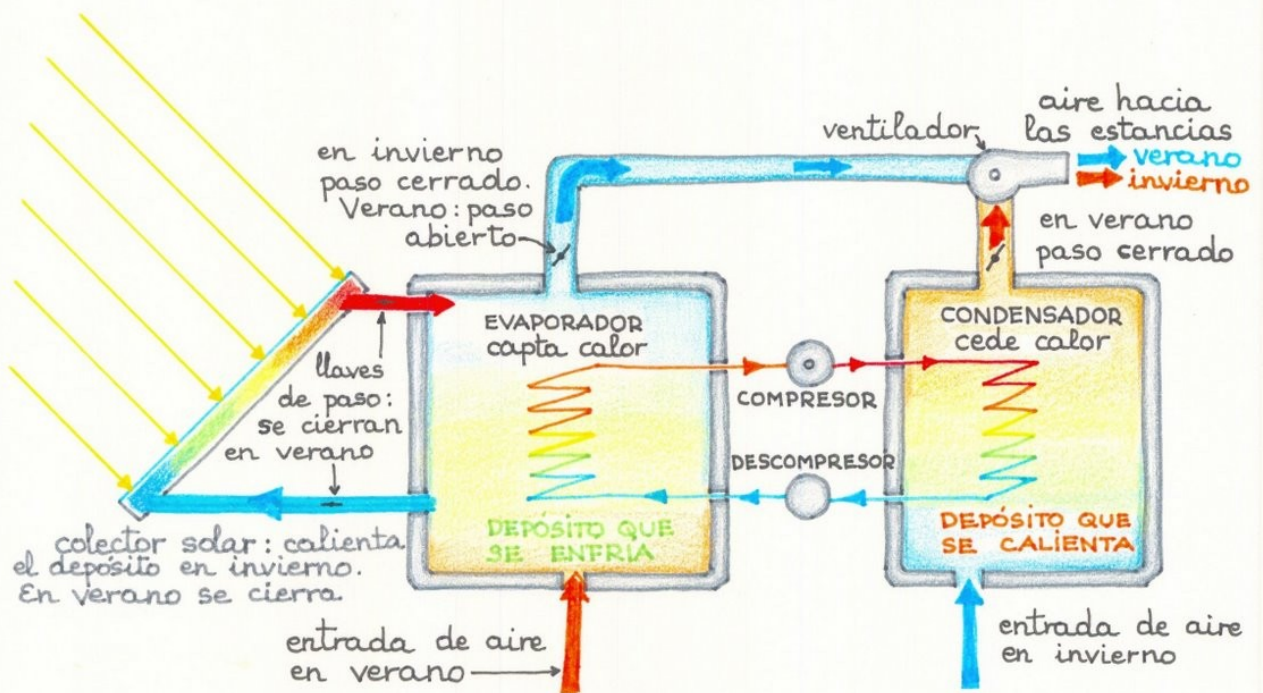 aire hacia
las estancias
verano
invierno
ventilador
en invierno
paso cerrado.
Verano: paso
abierto
en verano
paso cerrado
EVAPORADOR
capta calor
CONDENSADOR
cede calor
llaves
de paso:
se cierran
en verano
COMPRESOR
DESCOMPRESOR
DEPÓSITO QUE
SE ENFRIA
DEPÓSITO QUE
SE CALIENTA
colector solar: calienta
el depósito en invierno.
En verano se cierra
entrada de aire
en verano
entrada de aire
en invierno